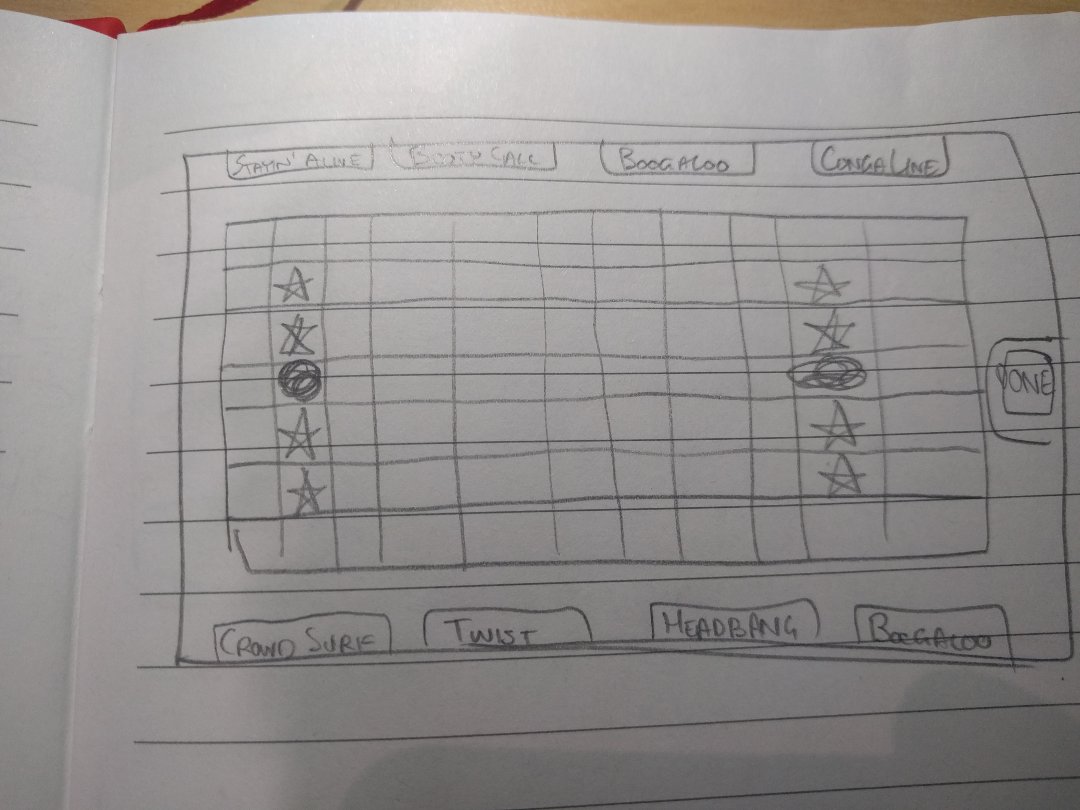 STAYIN' ALIVE
BOOTY CALL
BOOGALOO
CONGA LINE
DONE
CROWD SURF
TWIST
HEADBANG
BOOGALOO